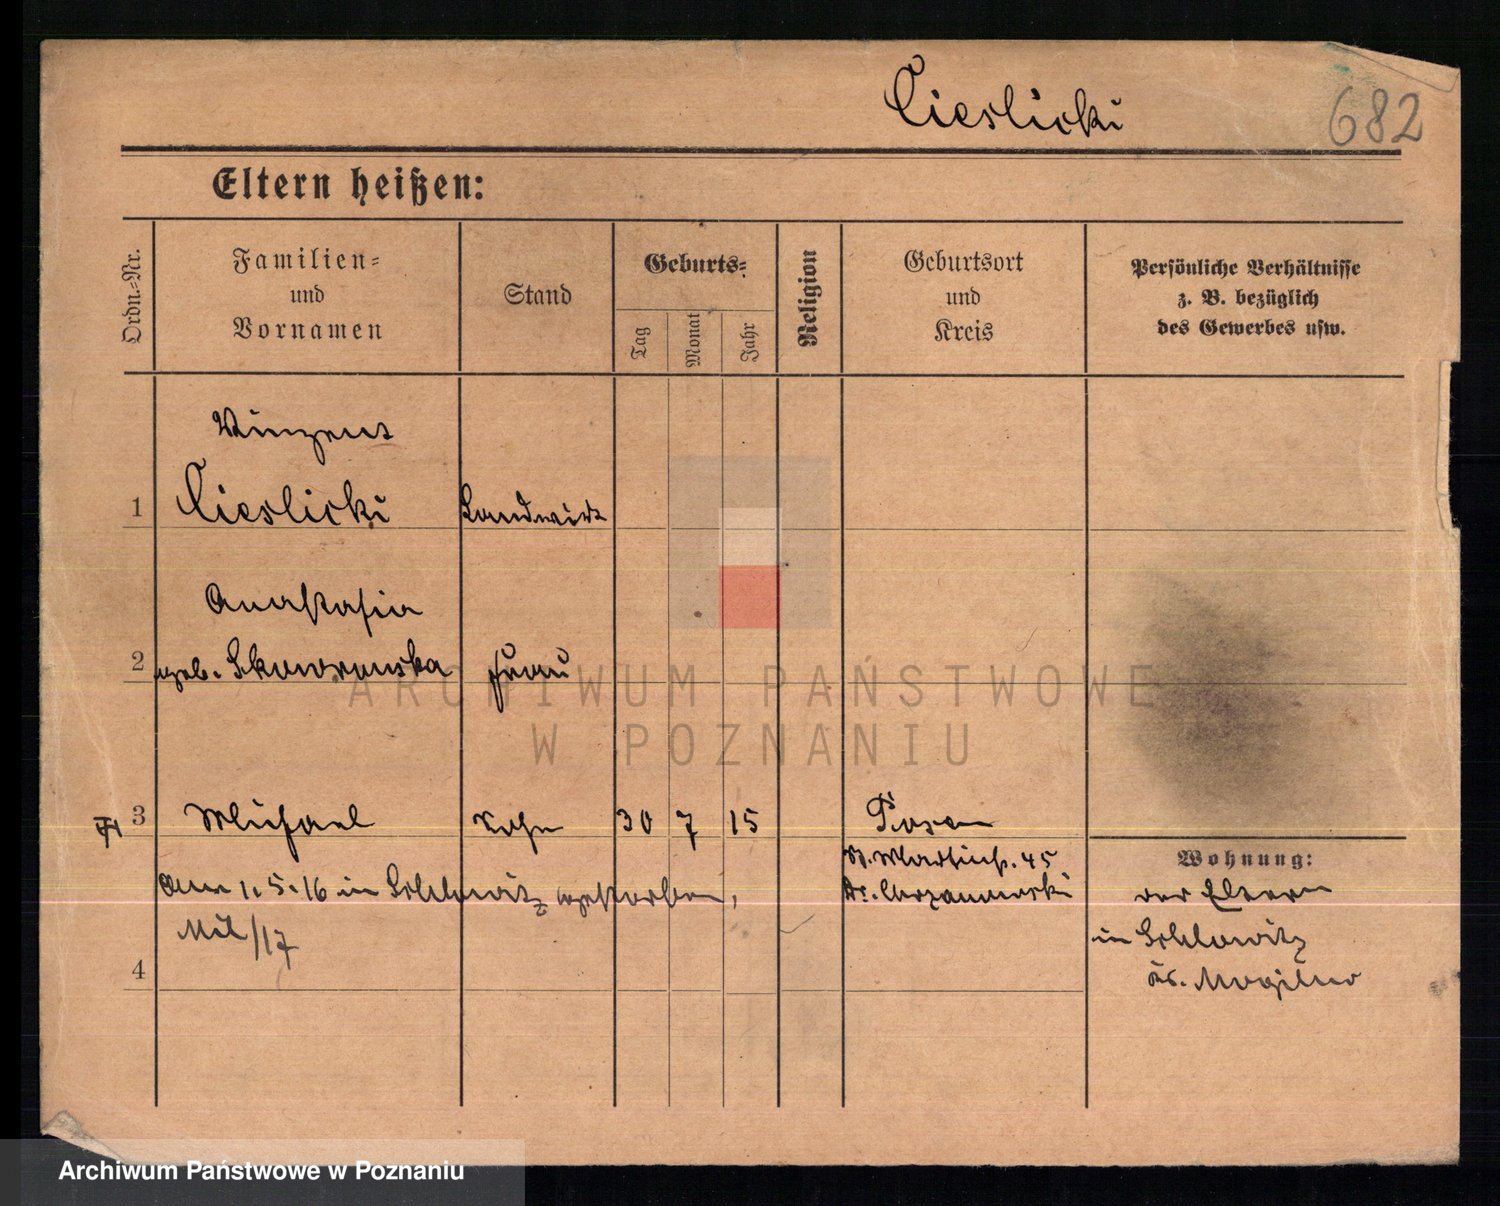 Cieslicki
682
Eltern heißen:
Ordn.-Nr.
Familien-
und
Vornamen
Stand
Geburts-
Tag
Monat
Jahr
Religion
Geburtsort
und
Kreis
Persönliche Verhältnisse
z. B. bezüglich
des Gewerbes usw.
Vinzent
1 Cieslicki Landwirt
Anastasia
2 geb. Skowronska Frau
3 Michael Sohn 30 7 15 Posen
St. Martinstr. 45
Wohnung:
Am 1.5.16 in gestorben,
der Eltern
in
Mil/17
Kr. Mogilno
4
ARCHIWUM PAŃSTWOWE
W POZNANIU
Archiwum Państwowe w Poznaniu